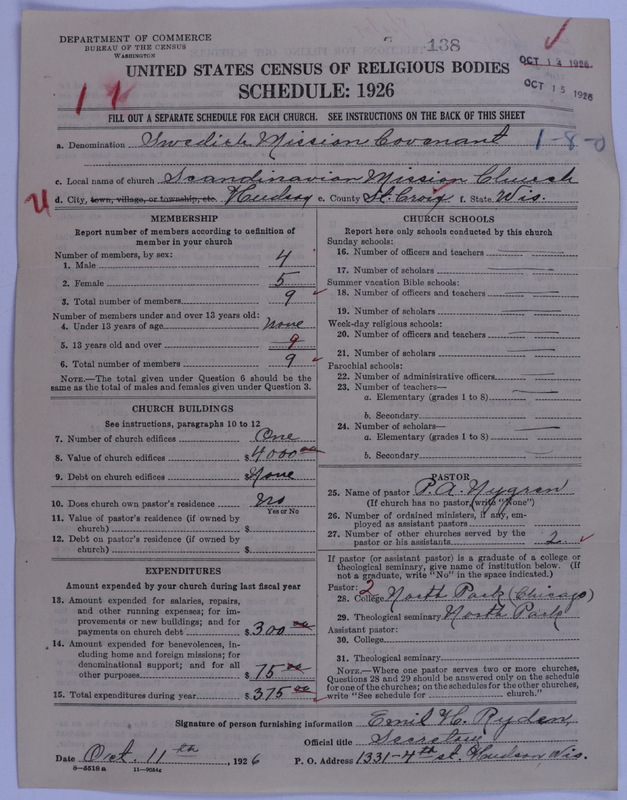 DEPARTMENT OF COMMERCE
BUREAU OF THE CENSUS
WASHINGTON
138
OCT 14 1926
OCT 15 1926
UNITED STATES CENSUS OF RELIGIOUS BODIES
SCHEDULE: 1926
FILL OUT A SEPARATE SCHEDULE FOR EACH CHURCH. SEE INSTRUCTIONS ON THE BACK OF THIS SHEET
a. Denomination Swedish Mission Covenant 1-8-0
c. Local name of church Scandinavian Mission Church
d. City, town, village, or township, etc. Hudson e. County St. Croix f. State Wis.
MEMBERSHIP
Report number of members according to definition of
member in your church
Number of members, by sex:
1. Male 4
2. Female 5
3. Total number of members 9
Number of members under and over 13 years old:
4. Under 13 years of age none
5. 13 years old and over 9
6. Total number of members 9
NOTE.—The total given under Question 6 should be the
same as the total of males and females given under Question 3.
CHURCH BUILDINGS
See instructions, paragraphs 10 to 12
7. Number of church edifices One
8. Value of church edifices $4000 00
9. Debt on church edifices $None
10. Does church own pastor's residence No
Yes or No
11. Value of pastor's residence (if owned by
church) $
12. Debt on pastor's residence (if owned by
church) $
EXPENDITURES
Amount expended by your church during last fiscal year
13. Amount expended for salaries, repairs,
and other running expenses; for im-
provements or new buildings; and for
payments on church debt $300 00
14. Amount expended for benevolences, in-
cluding home and foreign missions; for
denominational support; and for all
other purposes $75 00
15. Total expenditures during year $375 00
CHURCH SCHOOLS
Report here only schools conducted by this church
Sunday schools:
16. Number of officers and teachers
17. Number of scholars
Summer vacation Bible schools:
18. Number of officers and teachers
19. Number of scholars
Week-day religious schools:
20. Number of officers and teachers
21. Number of scholars
Parochial schools:
22. Number of administrative officers
23. Number of teachers—
a. Elementary (grades 1 to 8)
b. Secondary
24. Number of scholars—
a. Elementary (grades 1 to 8)
b. Secondary
PASTOR
25. Name of pastor P. A. Nygren
(If church has no pastor, write "None")
26. Number of ordained ministers, if any, em-
ployed as assistant pastors
27. Number of other churches served by the
pastor or his assistants 2
If pastor (or assistant pastor) is a graduate of a college or
theological seminary, give name of institution below. (If
not a graduate, write "No" in the space indicated.)
Pastor: 2
28. College North Park (Chicago)
29. Theological seminary North Park
Assistant pastor:
30. College
31. Theological seminary
NOTE.—Where one pastor serves two or more churches,
Questions 28 and 29 should be answered only on the schedule
for one of the churches; on the schedules for the other churches,
write "See schedule for church."
Signature of person furnishing information Emil H. Ryden
Official title Secretary
Date Oct. 11th, 1926 P. O. Address 1331-4th st. Hudson, Wis.
8-5518 a 11-9054c